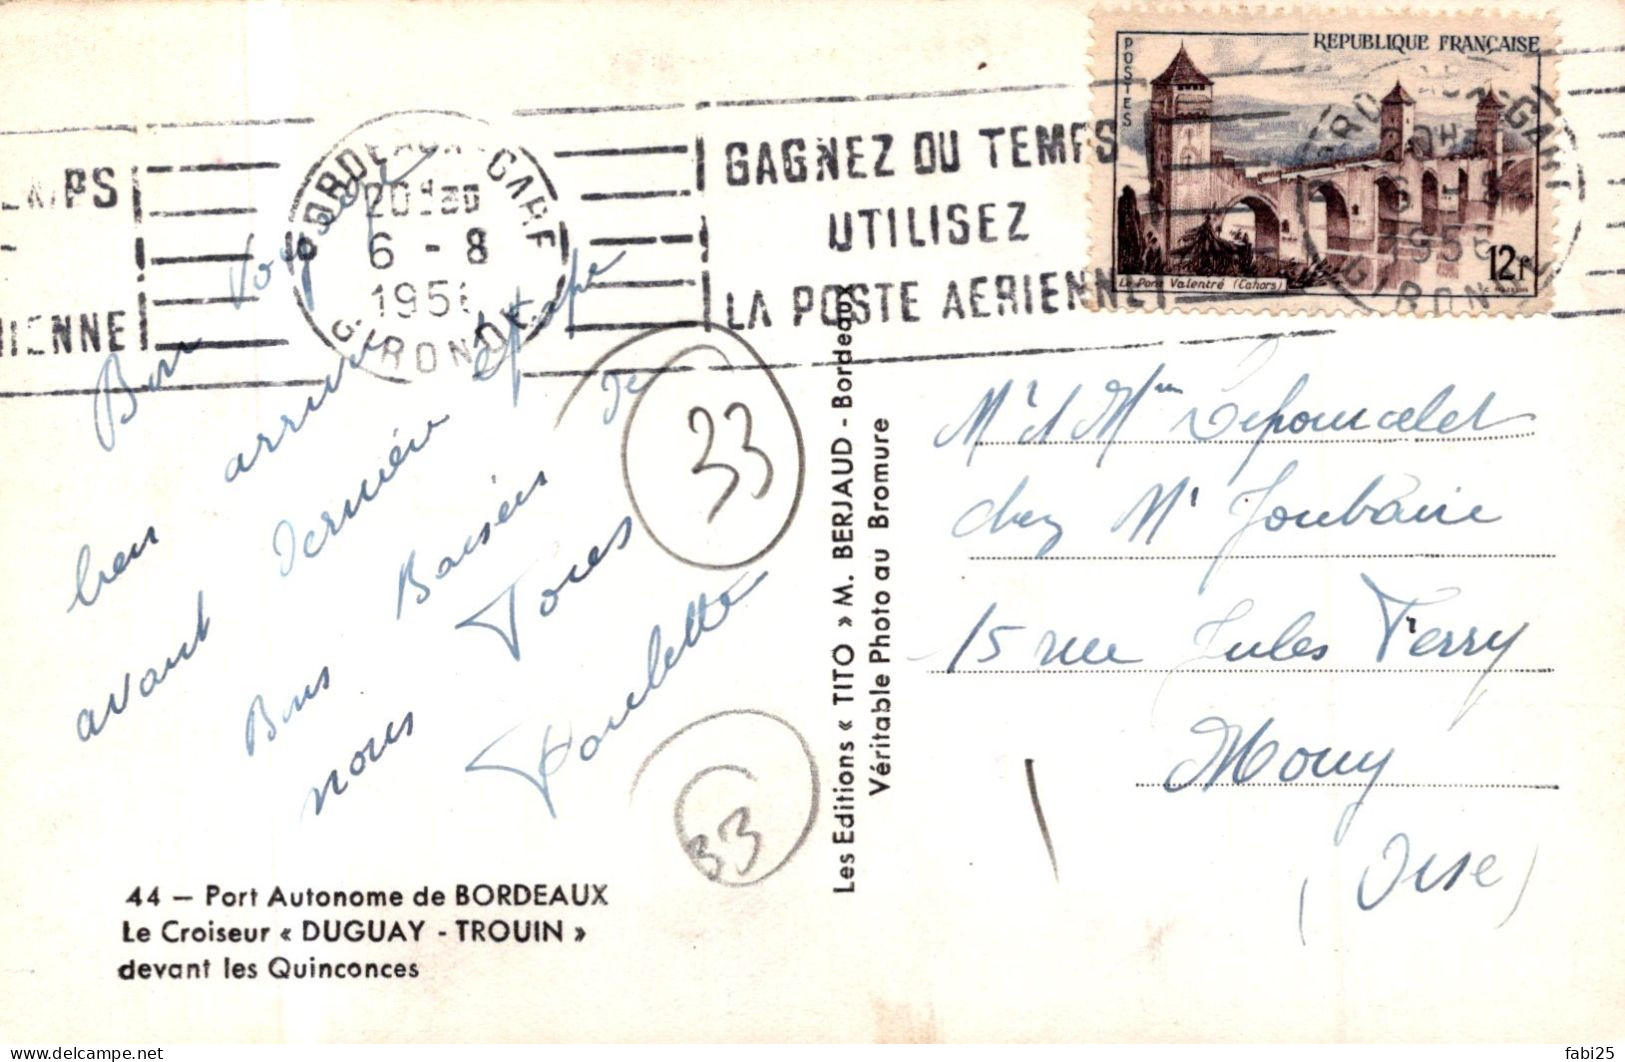 EMPS
IENNE
BORDEAUX - GARE
20H30
6 - 8
1956
GIRONDE
GAGNEZ DU TEMPS
UTILISEZ
LA POSTE AERIENNE
POSTES
REPUBLIQUE FRANÇAISE
Le Pont Valentré (Cahors)
12f
BORDEAUX - GARE
6 - 8
1956
GIRONDE
Bon Voyage
bien arrivée
avant dernière étape
Bons Baisers de
nous Tous
Paulette
33
33
Les Editions « TITO » M. BERJAUD - Bordeaux
Véritable Photo au Bromure
Mr & Mme
chez Mr Joubaire
15 rue Jules Ferry
Mouy
(Oise)
44 — Port Autonome de BORDEAUX
Le Croiseur « DUGUAY - TROUIN »
devant les Quinconces
delcampe.net
fabi25